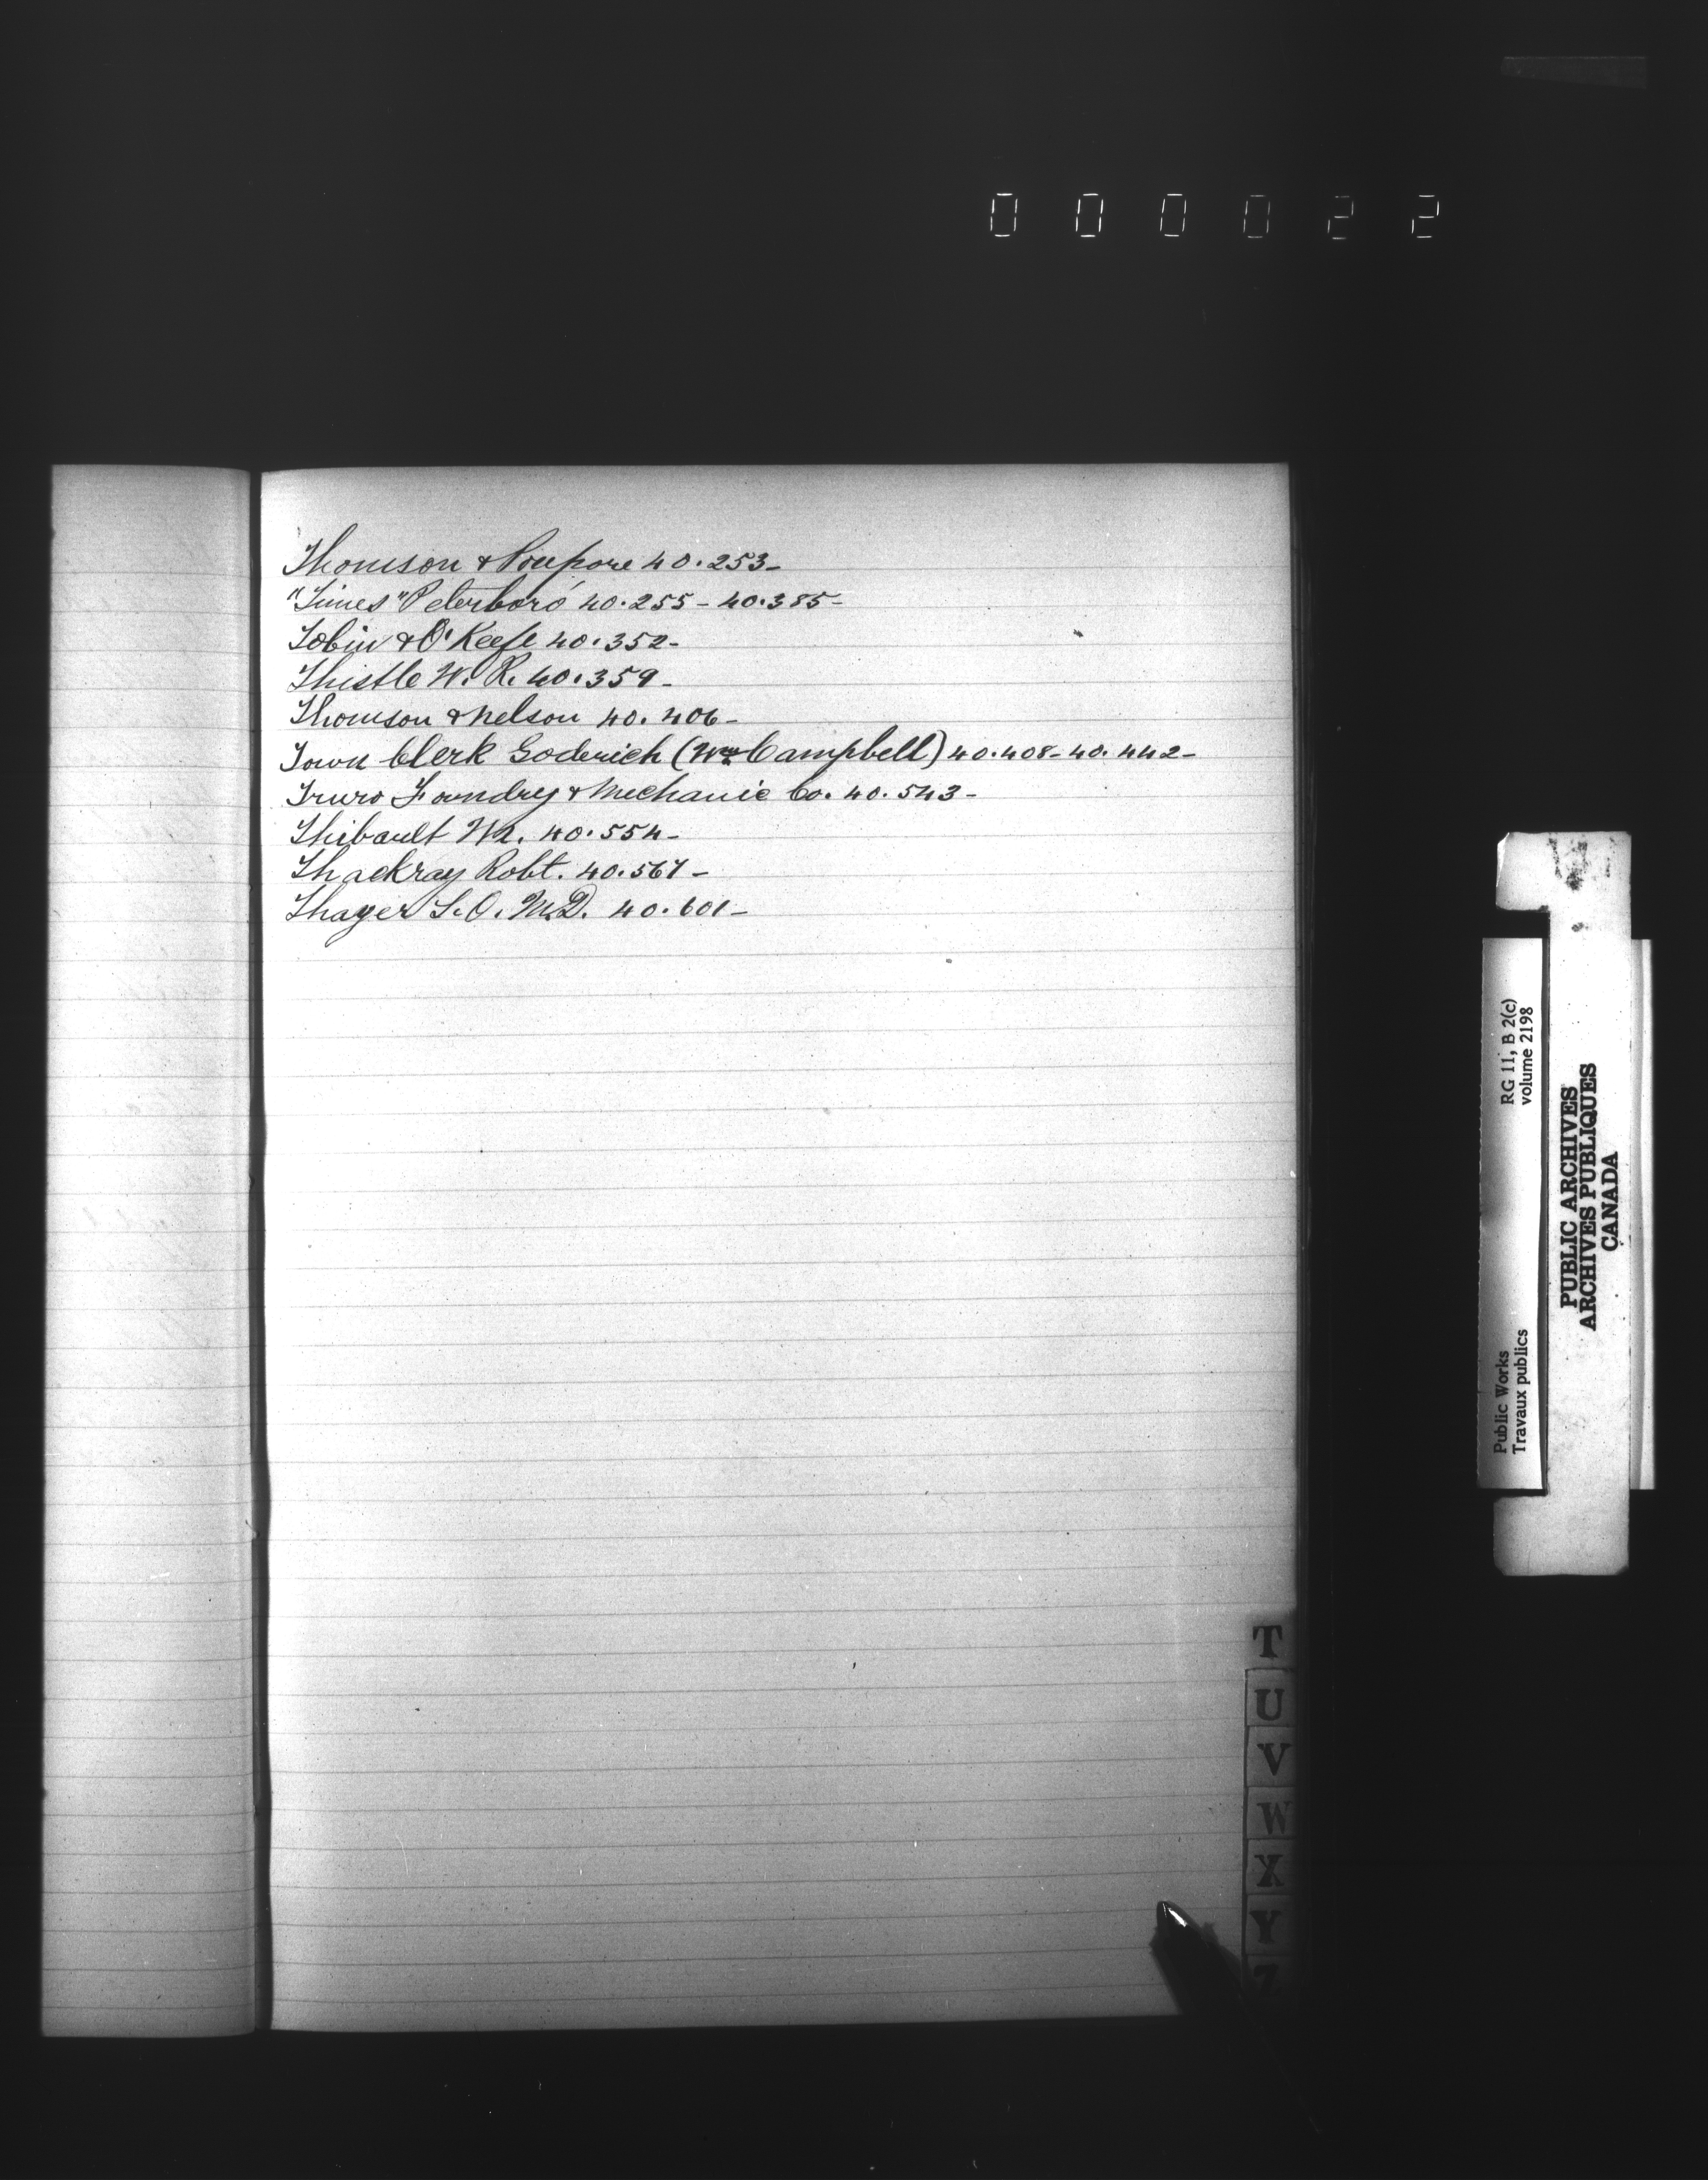 000022
Thomson & Poupore 40.253-
"Times" Peterboro' 40.255-40.385-
Tobin & O'Keefe 40.352-
Thistle W. R. 40.359-
Thomson & Nelson 40.406-
Town Clerk Goderich (Wm Campbell) 40.408-40.442-
Truro Foundry & Mechanic Co. 40.543-
Thibault 40.554-
Thackray Robt. 40.567-
Thayer S. O. M.D. 40.601-
T
U
V
W
X
Y
Z
Public Works
Travaux publics
RG 11, B 2(c)
volume 2198
PUBLIC ARCHIVES
ARCHIVES PUBLIQUES
CANADA